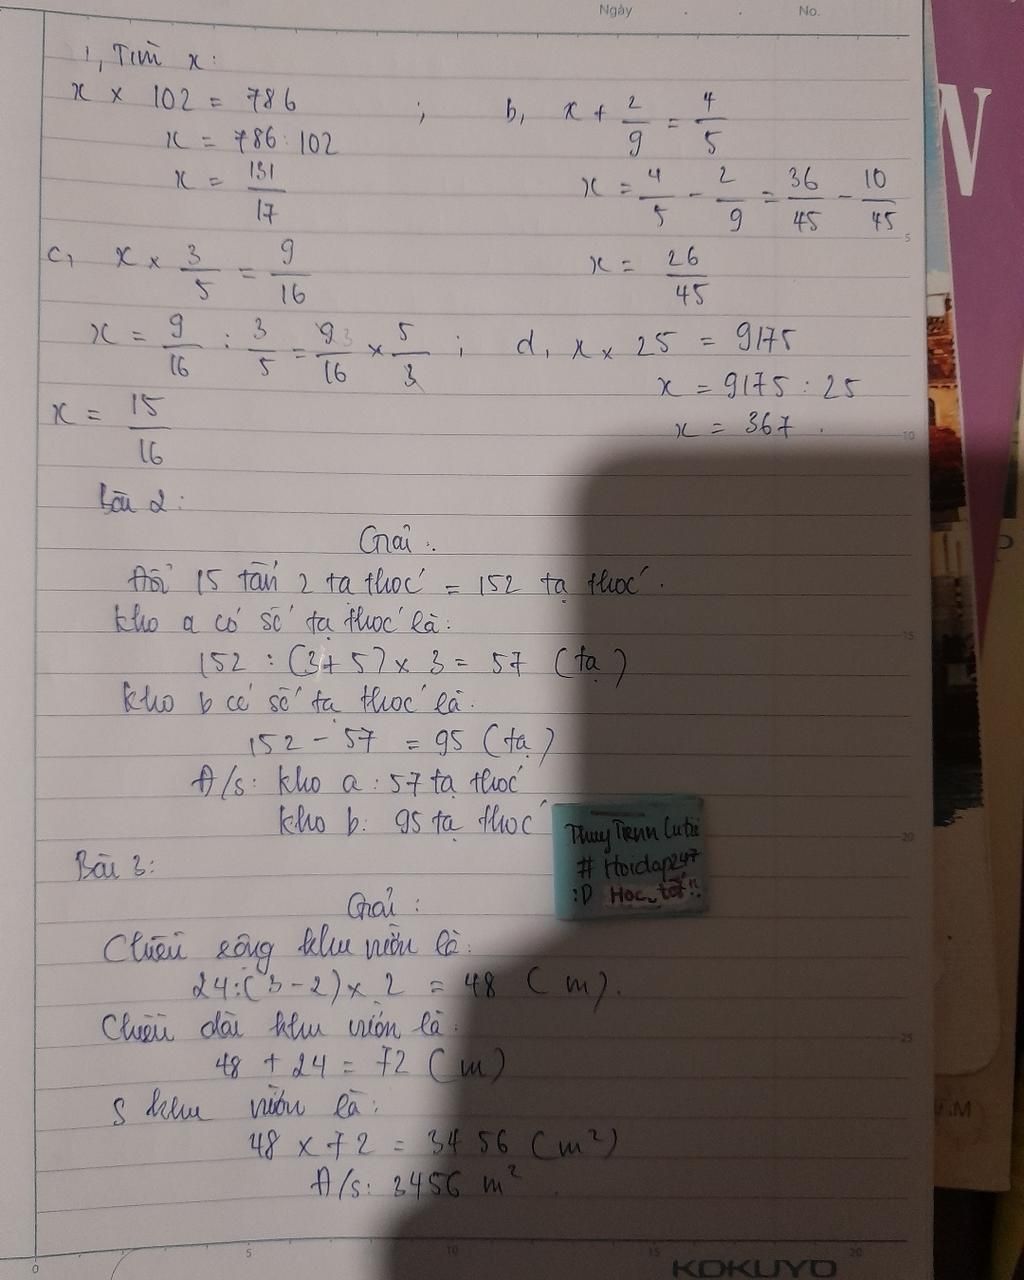 Ngày No.
1, Tìm x:
x × 102 = 786 ;
x = 786 : 102
x = 131/17
b, x + 2/9 = 4/5
x = 4/5 - 2/9 = 36/45 - 10/45
x = 26/45
c, x × 3/5 = 9/16
x = 9/16 : 3/5 = 9 3/16 × 5/3 ;
x = 15/16
d, x × 25 = 9175
x = 9175 : 25
x = 367.
Bài 2:
Giải:
Đổi 15 tấn 2 tạ thóc = 152 tạ thóc.
kho a có số tạ thóc là:
152 : (3 + 5) × 3 = 57 (tạ)
kho b có số tạ thóc là:
152 - 57 = 95 (tạ)
Đ/s: kho a: 57 tạ thóc
kho b: 95 tạ thóc
Thuy Tien Cutie
# Hoidap247
:D Học tốt!!
Bài 3:
Giải:
Chiều rộng khu vườn là:
24:(3-2) × 2 = 48 (m).
Chiều dài khu vườn là:
48 + 24 = 72 (m)
S khu vườn là:
48 × 72 = 3456 (m²)
Đ/s: 3456 m².
5
10
15
20
25
0 5 10 15 20
KOKUYO